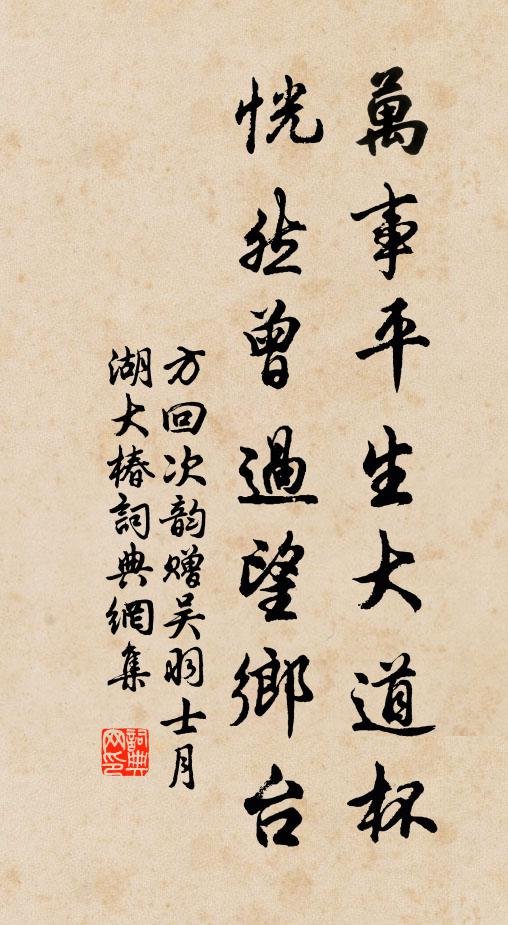 萬事平生大道杯
恍然曾過望鄉台
方回次韵贈吴羽士月
湖大椿詞典網集
詞典网印